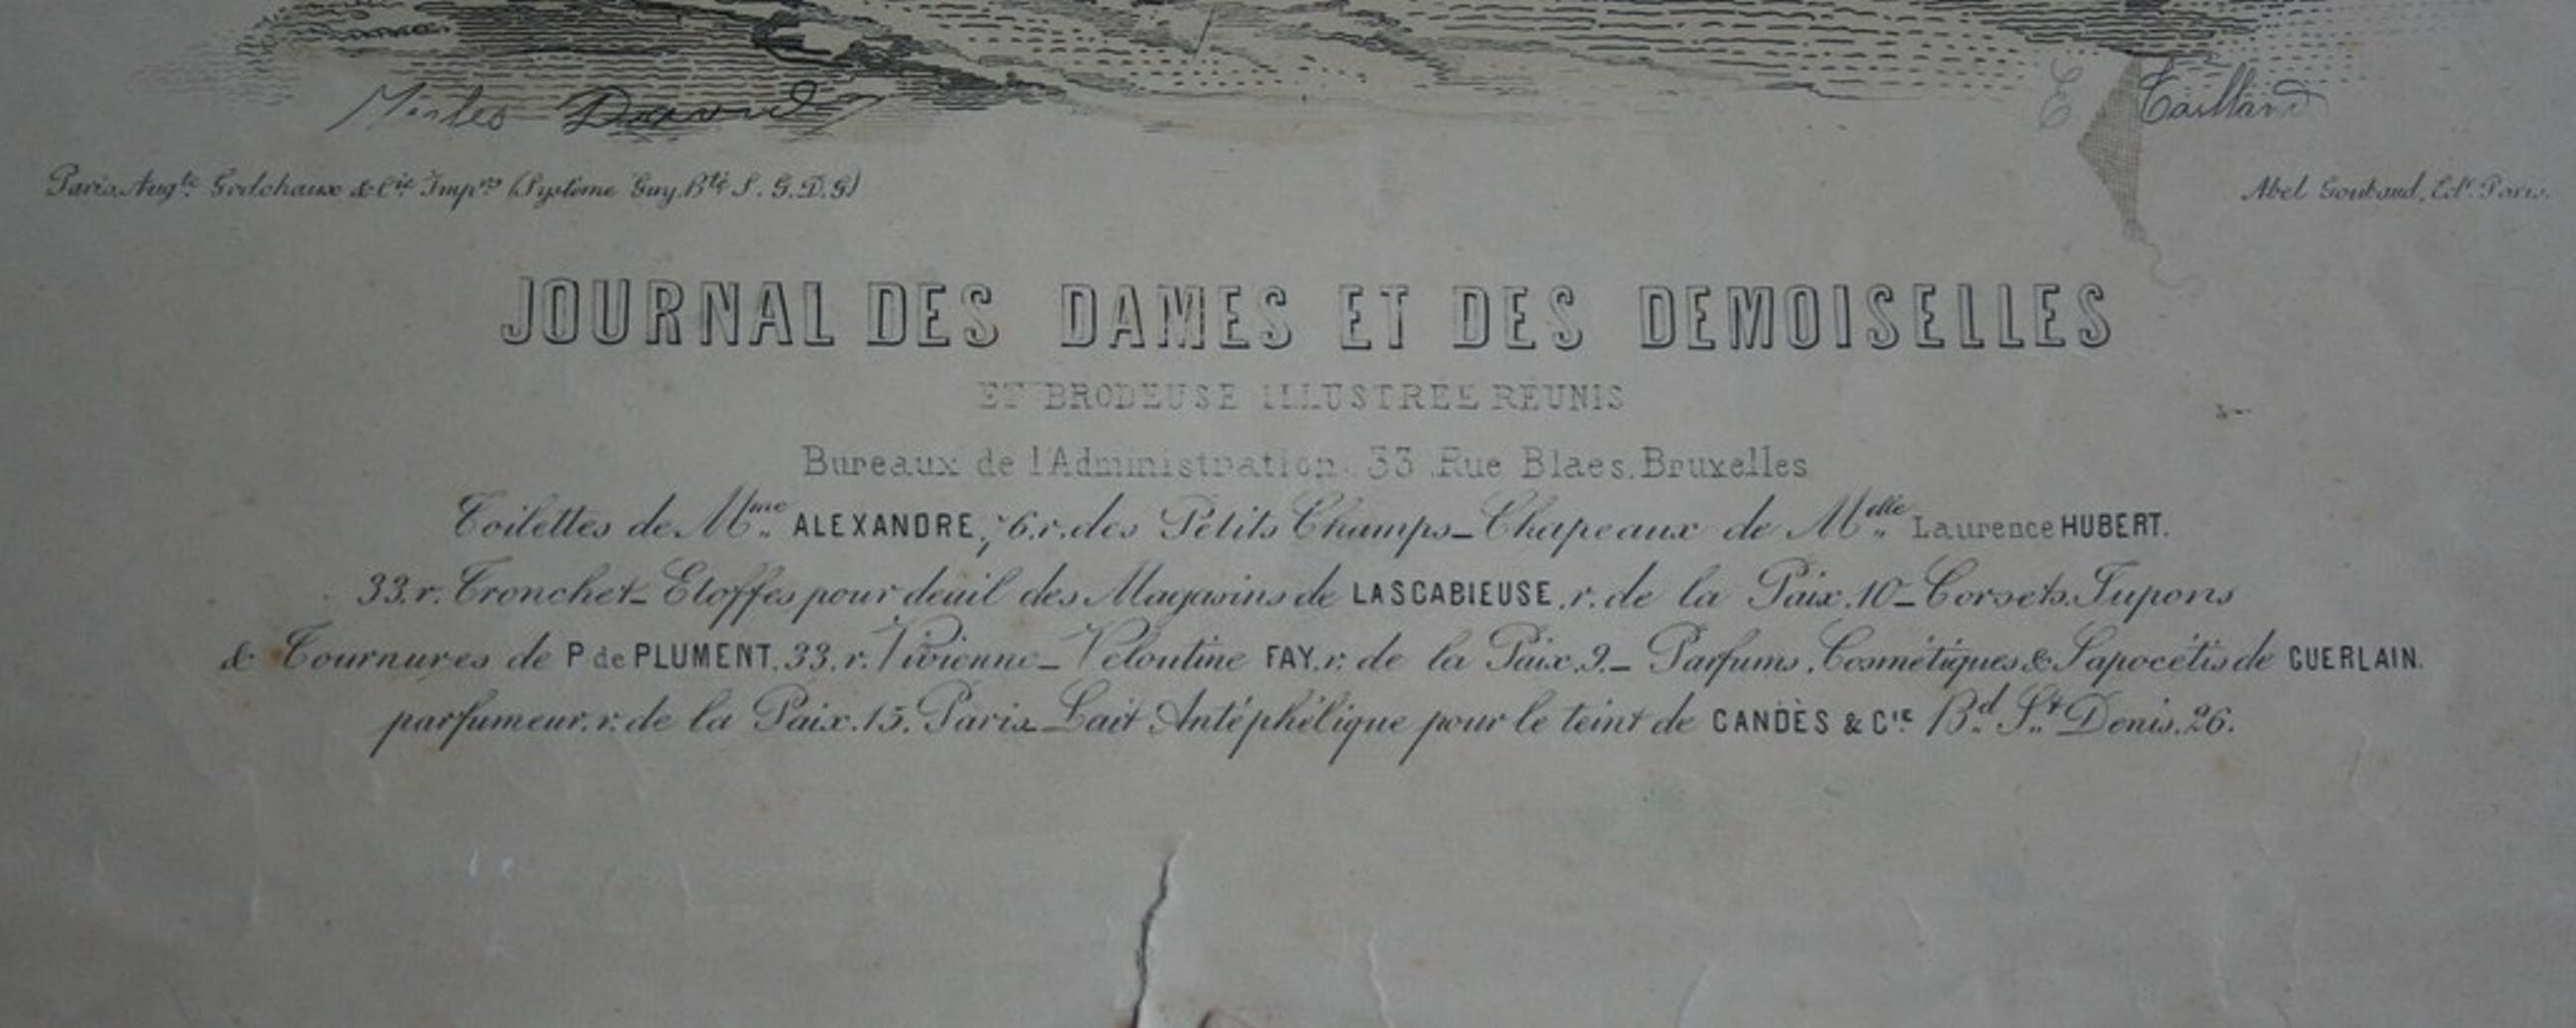 Jules David
E Tailland
Paris, Aug.te Godchaux & Cie Imp.rs (Système Guy, B.té S. G. D. G)
Abel Goubaud, Ed.r Paris.
JOURNAL DES DAMES ET DES DEMOISELLES
ET BRODEUSE ILLUSTRÉE RÉUNIS
Bureaux de l'Administration 33 Rue Blaes, Bruxelles
Toilettes de Mme ALEXANDRE, 6, r. des Petits Champs_Chapeaux de Melle Laurence HUBERT.
33, r. Tronchet_Etoffes pour deuil des Magasins de LA SCABIEUSE, r. de la Paix, 10_Corsets, Jupons
& Tournures de P de PLUMENT, 33, r. Vivienne_Veloutine FAY, r. de la Paix, 9._Parfums, Cosmétiques & Sapocétis de GUERLAIN.
parfumeur, r. de la Paix, 15, Paris_Lait Antéphélique pour le teint de CANDÈS & Cie Bd St Denis, 26.